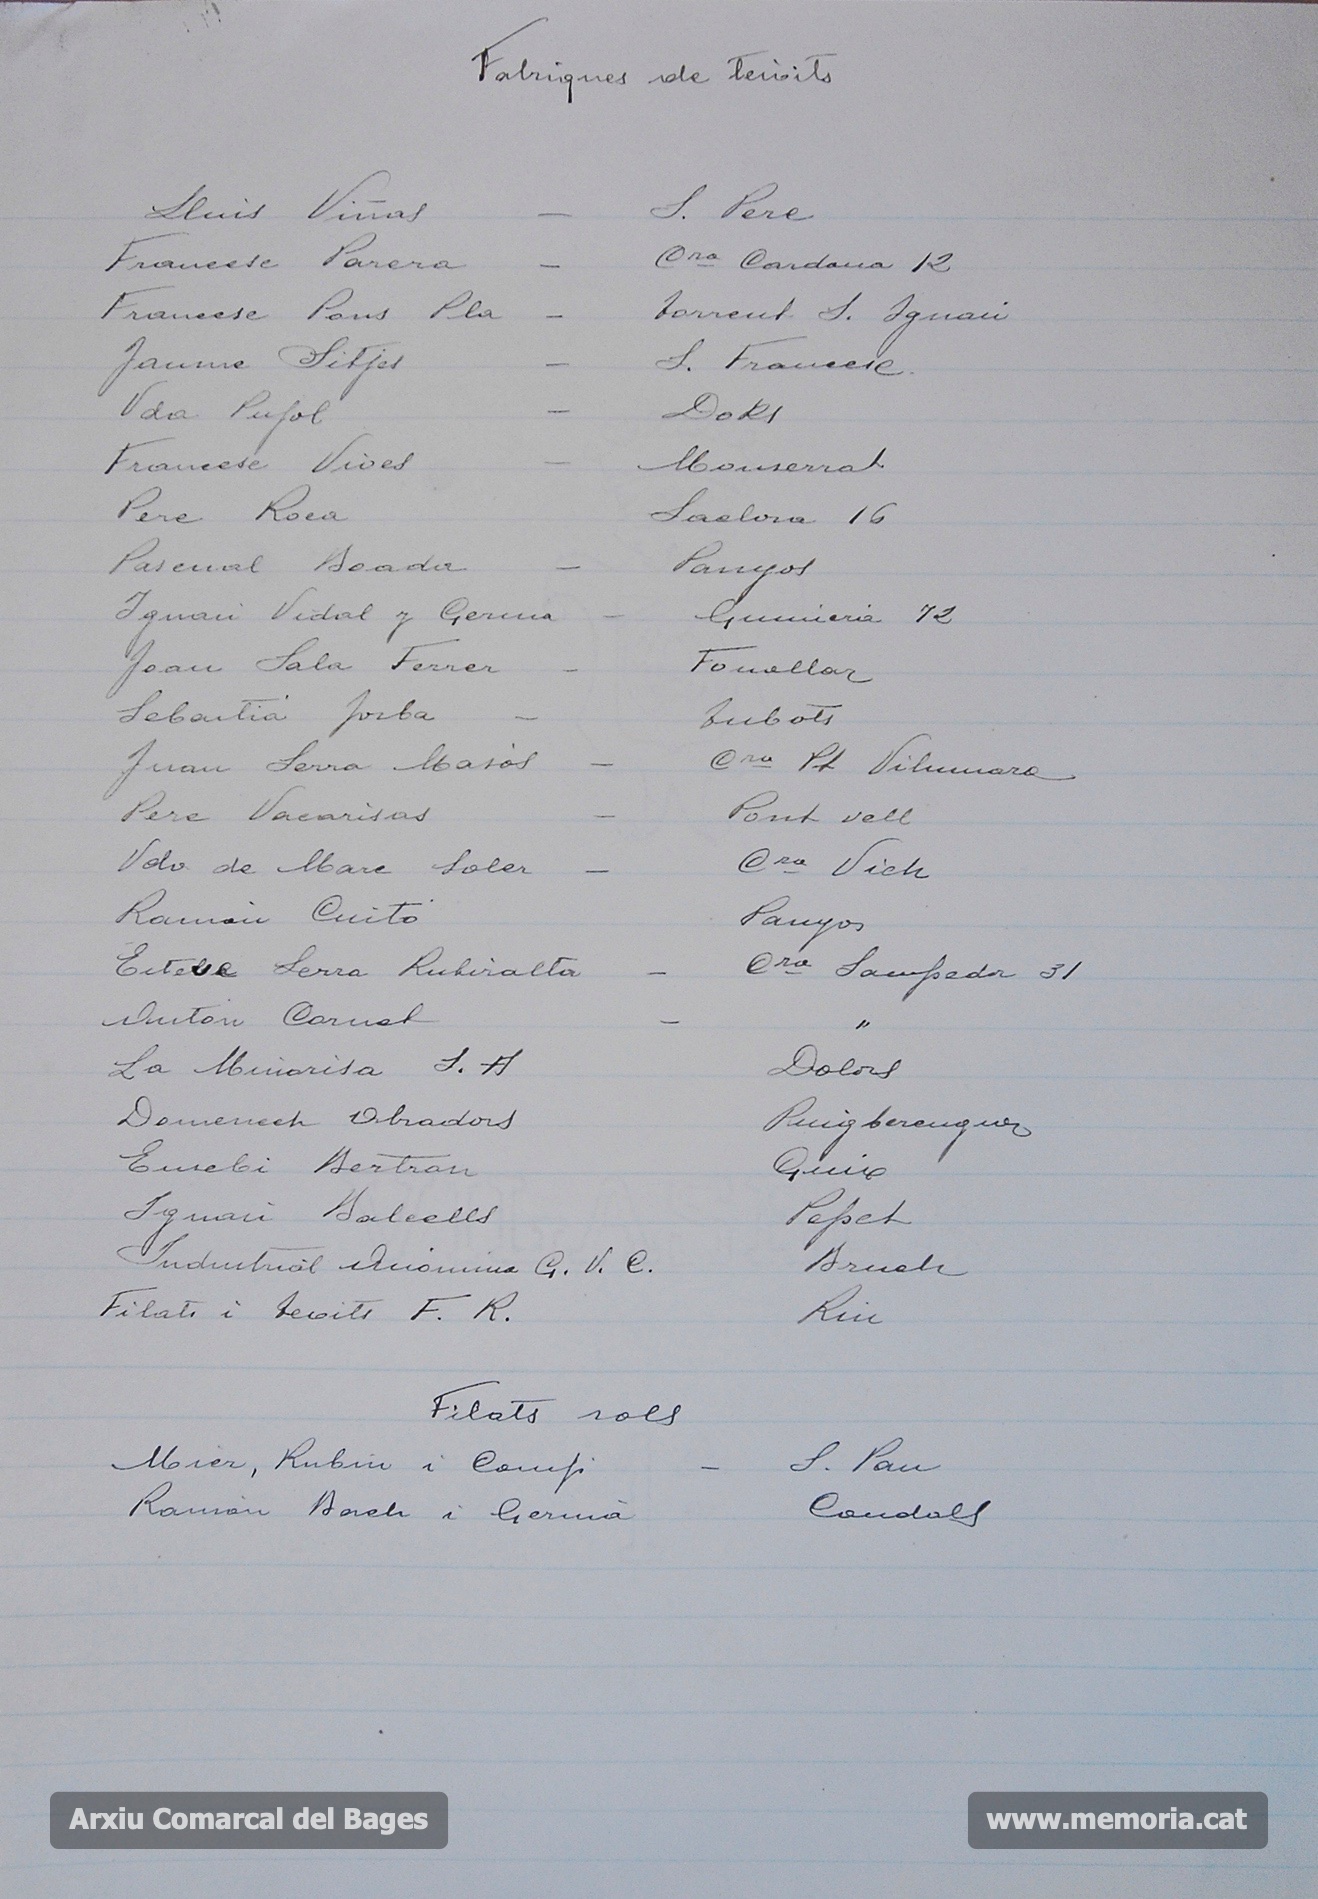 Fabriques de teixits
Lluis Viñas — S. Pere
Francesc Parera — Cra Cardona 12
Francesc Pons Pla — torrent S. Ignaci
Jaume Sitjes — S. Francesc.
Vda Pujol — Doks
Francesc Vives — Monserrat
Pere Roca Saclosa 16
Pascual Boada — Panyos
Ignaci Vidal y Germa — Gumieria 72
Joan Sala Ferrer — Fonollar
Sebastiá Jorba — tubots
Juan Serra Masós — Cra Pt Vilumara
Pere Vacarisas — Pont vell
Vda de Marc Soler — Cra Vich
Ramón Cuitó Panyos
Esteve Serra Rubiralta — Cra Sampedor 31
Antón Cornet — "
La Minorisa S. A Dolors
Domenech Obradors Puigberenguer
Eusebi Bertran Guix
Ignaci Balcells Pepet
Industrial Anónima G. V. C. Bruch
Filats i teixits F. R. Riu
Filats sols
Meier, Rubin i Comp — S. Pau
Ramón Bach i Germà Condals
Arxiu Comarcal del Bages
www.memoria.cat